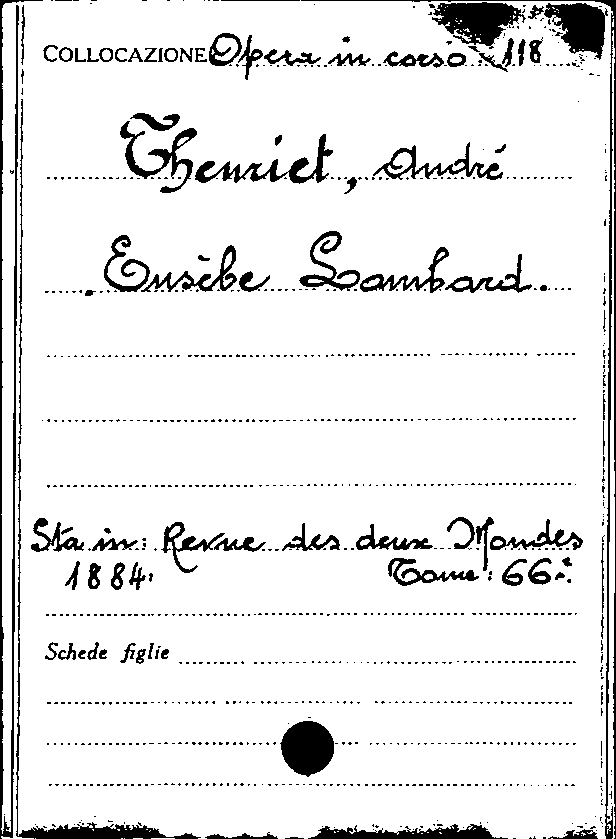 COLLOCAZIONE Opera in corso. 118
Theuriet, André
Eusèbe Lombard.
Sta in: Revue des deux Mondes
1884. Tome: 66º.
Schede figlie